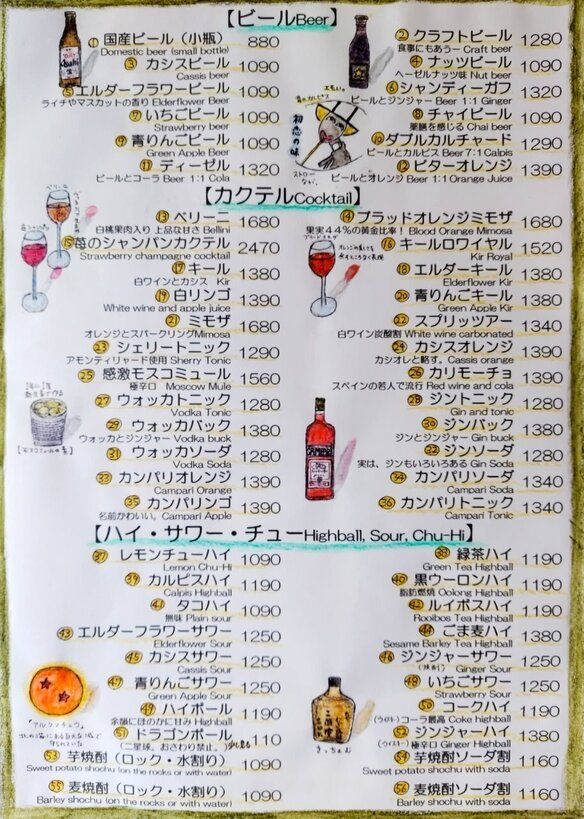 【ビールBeer】
① 国産ビール（小瓶） 880
Domestic beer (small bottle)
② クラフトビール 1280
食事にもあうー Craft beer
③ カシスビール 1090
Cassis beer
④ ナッツビール 1090
ヘーゼルナッツ味 Nut beer
⑤ エルダーフラワービール 1090
ライチやマスカットの香り Elderflower Beer
⑥ シャンディーガフ 1320
ビールとジンジャー Beer 1:1 Ginger
⑦ いちごビール 1090
Strawberry beer
⑧ チャイビール 1090
薬膳を感じる Chai beer
⑨ 青りんごビール 1090
Green Apple Beer
⑩ ダブルカルチャード 1290
ビールとカルピス Beer 7:1 Calpis
⑪ ディーゼル 1320
ビールとコーラ Beer 1:1 Cola
⑫ ビターオレンジ 1390
ビールとオレンジ Beer 1:1 Orange Juice
初恋の味
ストロー
Asahi
【カクテルCocktail】
⑬ ベリーニ 1680
白桃果肉入り 上品な甘さ Bellini
⑭ ブラッドオレンジミモザ 1680
果実44％の黄金比率！ Blood Orange Mimosa
⑮ 苺のシャンパンカクテル 2470
Strawberry champagne cocktail
⑯ キールロワイヤル 1520
Kir Royal
⑰ キール 1380
白ワインとカシス Kir
⑱ エルダーキール 1380
Elderflower Kir
⑲ 白リンゴ 1390
White wine and apple juice
⑳ 青りんごキール 1380
Green Apple Kir
㉑ ミモザ 1680
オレンジとスパークリングMimosa
㉒ スプリッツアー 1340
白ワイン炭酸割 White wine carbonated
㉓ シェリートニック 1290
アモンティリャード使用 Sherry Tonic
㉔ カシスオレンジ 1390
カシオレと略す。Cassis orange
㉕ 感激モスコミュール 1560
極辛口 Moscow Mule
㉖ カリモーチョ 1390
スペインの若人で流行 Red wine and cola
㉗ ウォッカトニック 1280
Vodka Tonic
㉘ ジントニック 1280
Gin and tonic
㉙ ウォッカバック 1380
ウォッカとジンジャー Vodka buck
㉚ ジンバック 1380
ジンとジンジャー Gin buck
㉛ ウォッカソーダ 1280
Vodka Soda
㉜ ジンソーダ 1280
実は、ジンもいろいろある Gin Soda
㉝ カンパリオレンジ 1390
Campari Orange
㉞ カンパリソーダ 1340
Campari Soda
㉟ カンパリンゴ 1390
名前かわいい。Campari Apple
㊱ カンパリトニック 1340
Campari Tonic
【ハイ・サワー・チューHighball, Sour, Chu-Hi】
㊲ レモンチューハイ 1090
Lemon Chu-Hi
㊳ 緑茶ハイ 1190
Green Tea Highball
㊴ カルピスハイ 1190
Calpis Highball
㊵ 黒ウーロンハイ 1190
脂肪燃焼 Oolong Highball
㊶ タコハイ 1090
無味 Plain sour
㊷ ルイボスハイ 1190
Rooibos Tea Highball
㊸ エルダーフラワーサワー 1250
Elderflower Sour
㊹ ごま麦ハイ 1380
Sesame Barley Tea Highball
㊺ カシスサワー 1250
Cassis Sour
㊻ ジンジャーサワー 1190
Ginger Sour
㊼ 青りんごサワー 1250
Green Apple Sour
㊽ いちごサワー 1250
Strawberry Sour
㊾ ハイボール 1190
余韻にほのかに甘み Highball
㊿ コークハイ 1190
コーラ最高 Coke highball
51 ドラゴンボール 1110
（二星球。おさわり禁止。
52 ジンジャーハイ 1190
極辛口 Ginger Highball
53 芋焼酎（ロック・水割り） 1090
Sweet potato shochu (on the rocks or with water)
54 芋焼酎ソーダ割 1160
Sweet potato shochu with soda
55 麦焼酎（ロック・水割り） 1090
Barley shochu (on the rocks or with water)
56 麦焼酎ソーダ割 1160
Barley shochu with soda
きっちょむ